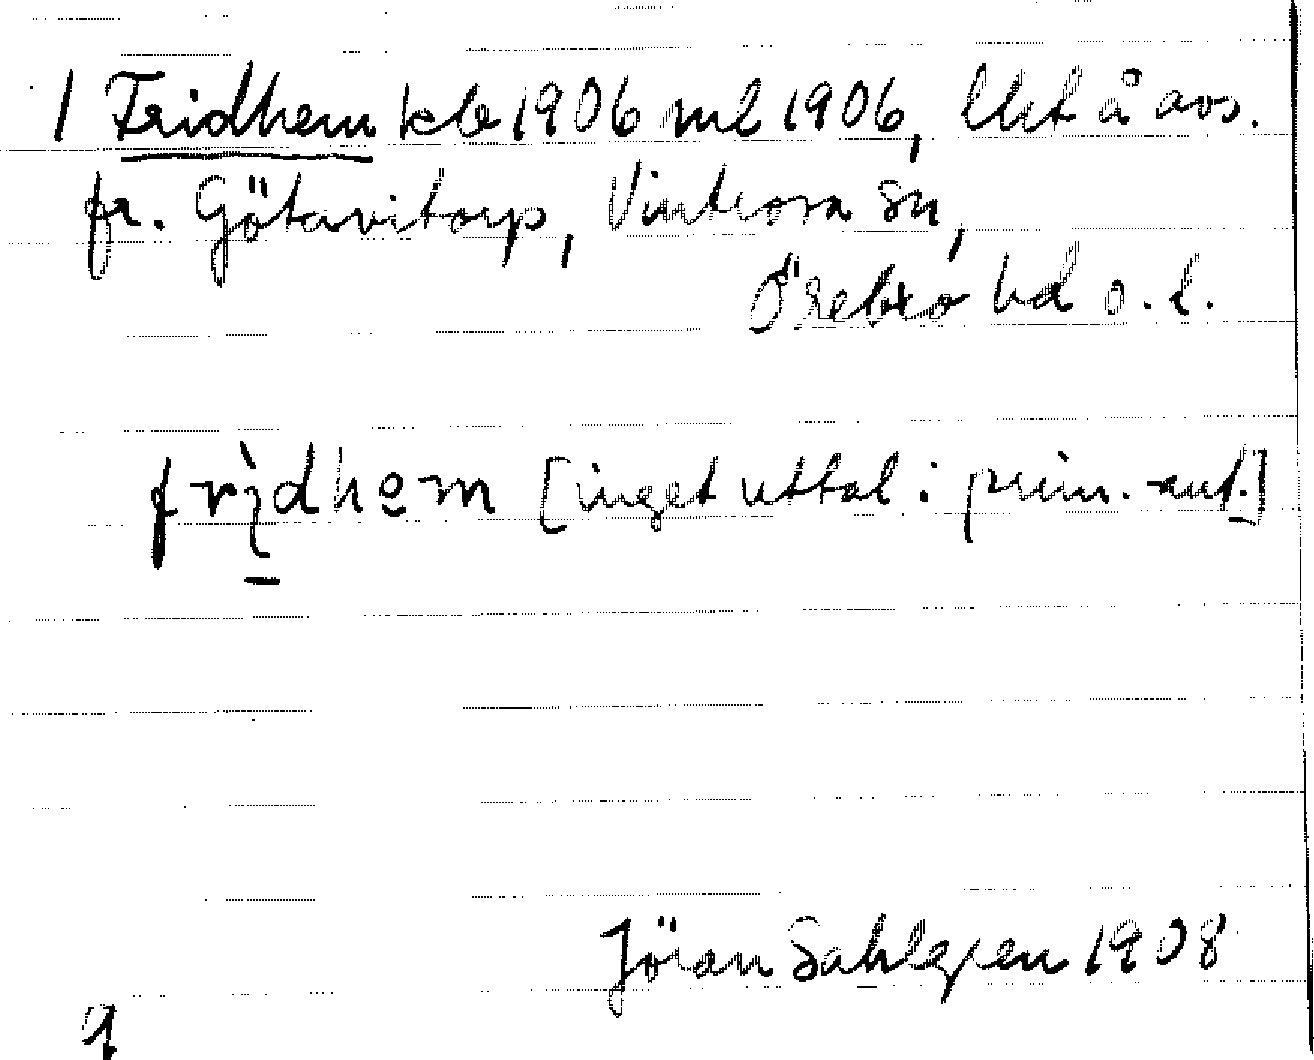 1 Fridhem kb 1906 ml 1906, lht å avs.
fr. Götavitorp, Vintrosa sn,
Örebro hd o. l.
frì̱dhem [inget uttal i prim.-ant.]
Jöran Sahlgren 1908